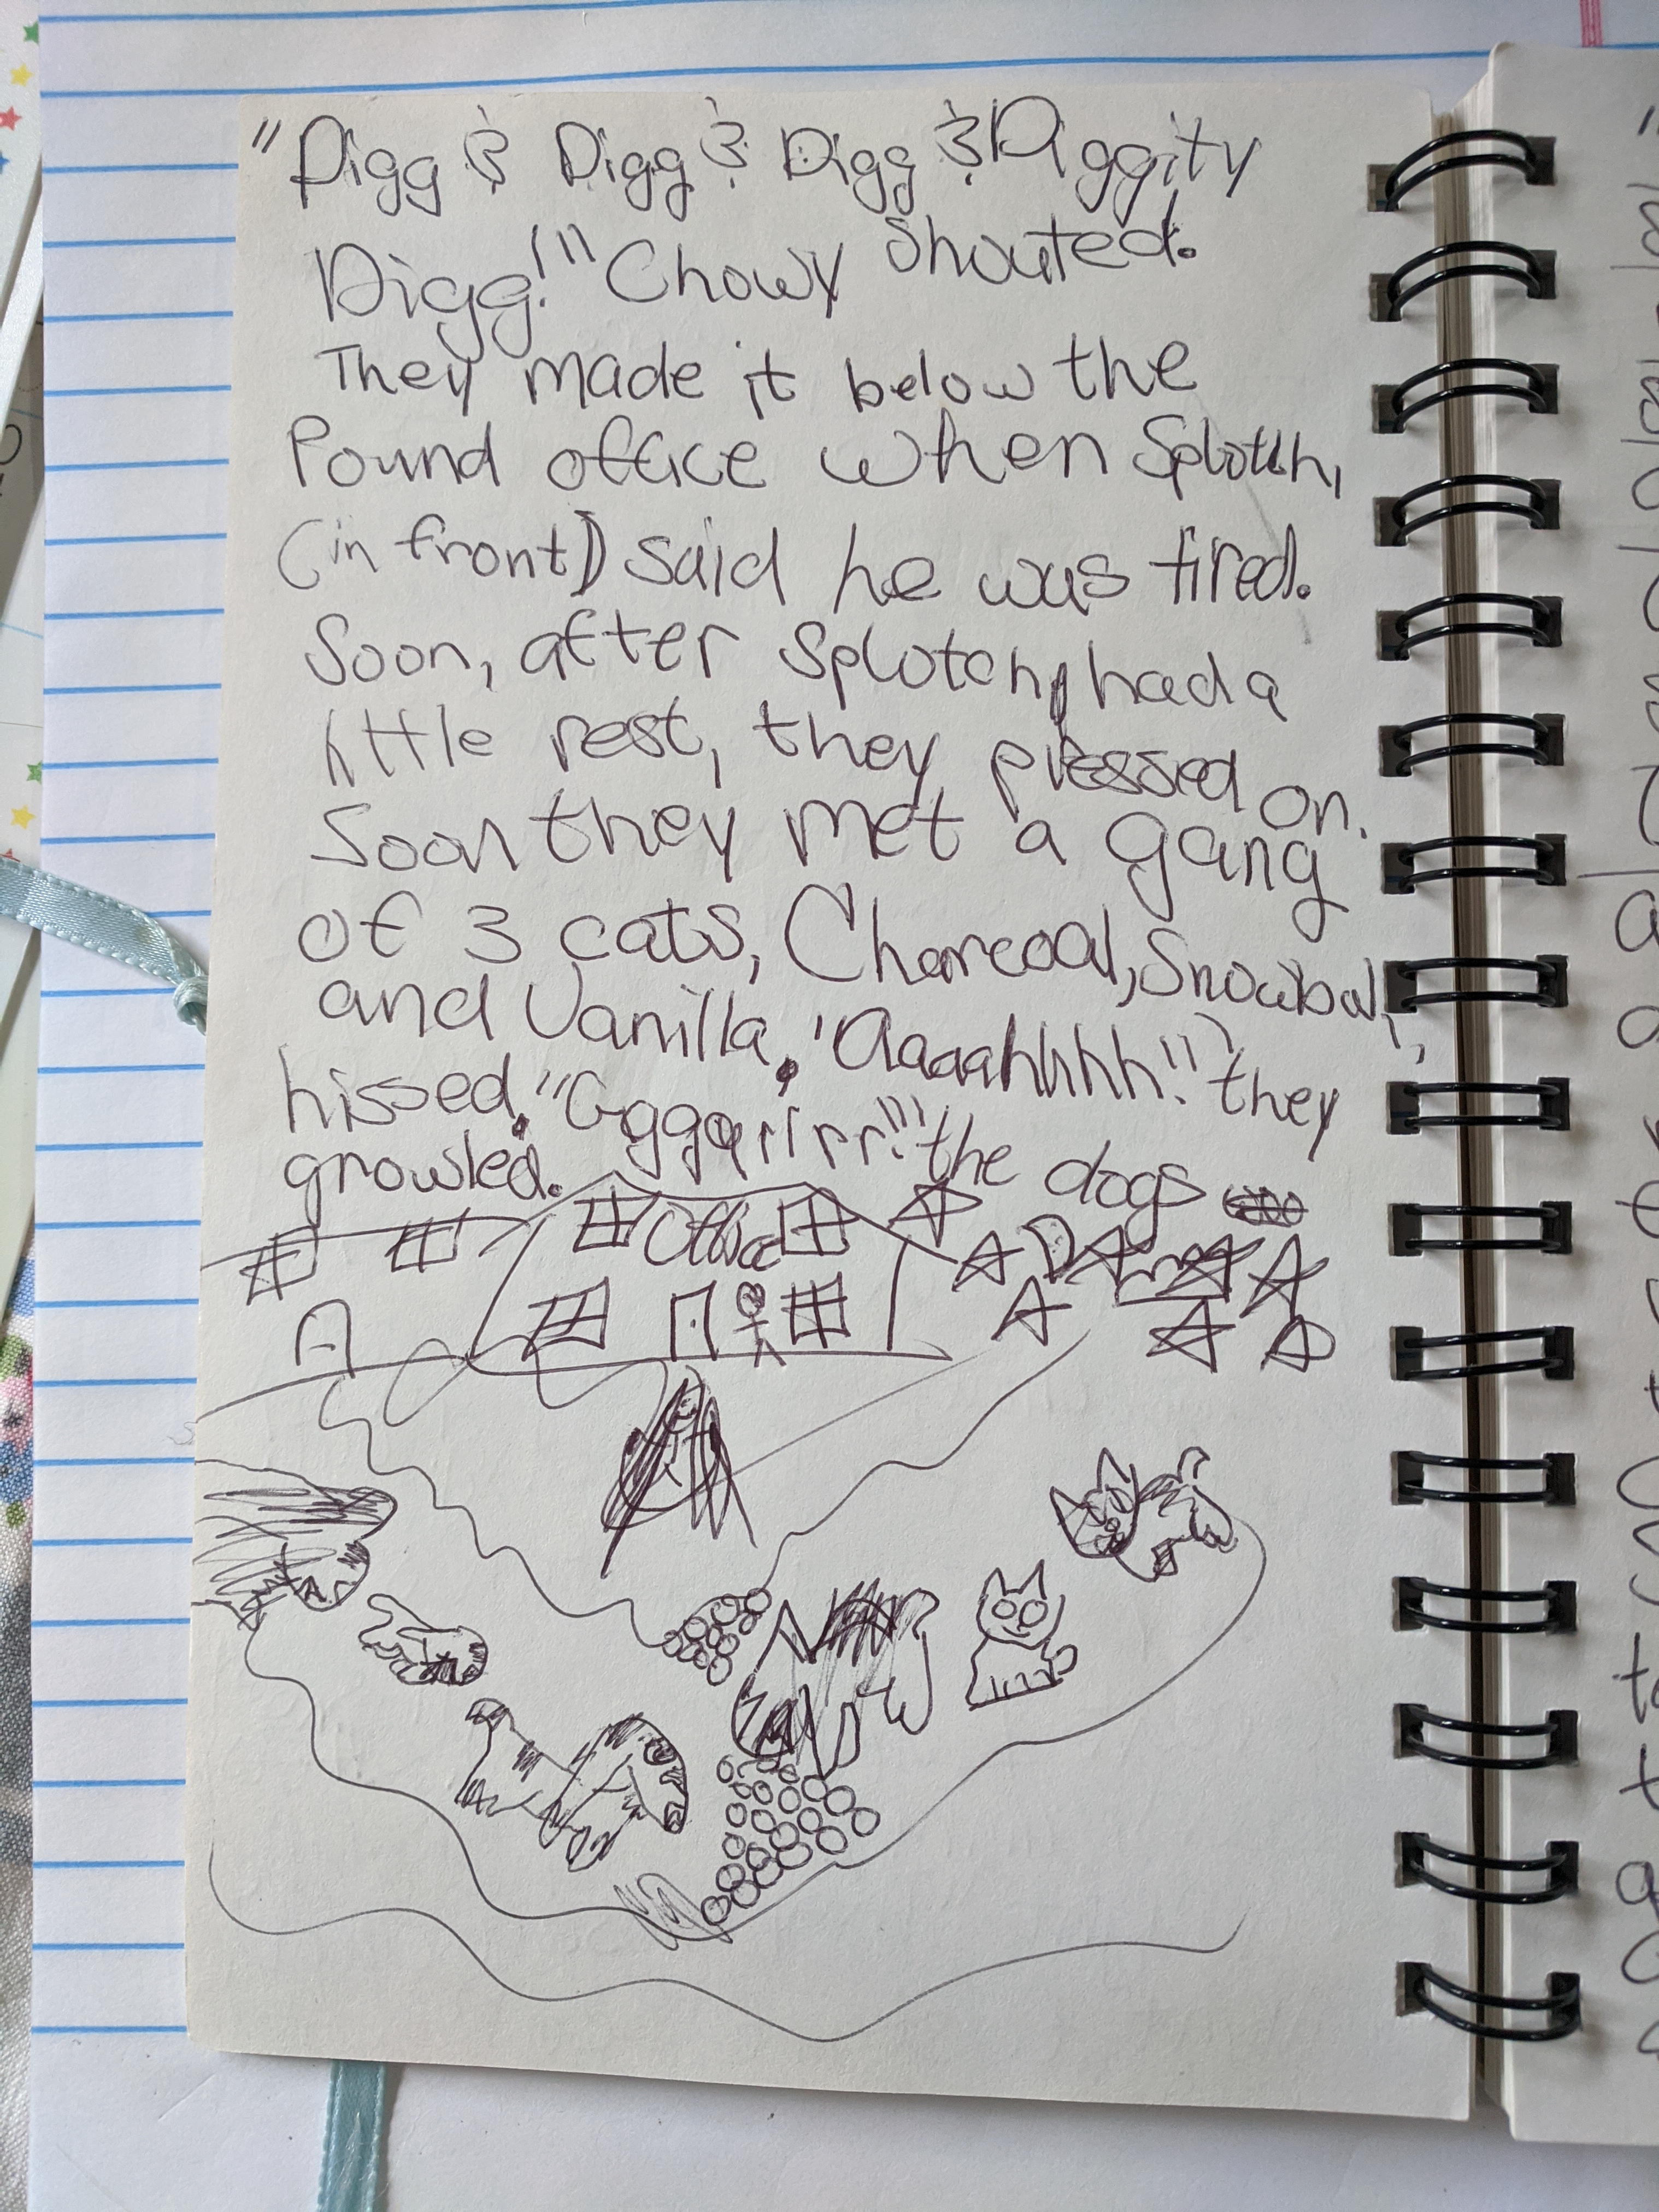 "Digg & Digg & Digg & Diggity
Digg!" Chowy shouted.
They made it below the
Pound office when Splotch,
(in front) said he was tired.
Soon, after Splotch, had a
little rest, they pressed on.
Soon they met a gang
of 3 cats, Charcoal, Snowball,
and Vanilla. "Aaaahhhh!" they
hissed, "Ggggrrrrr!" the dogs
growled.
Office